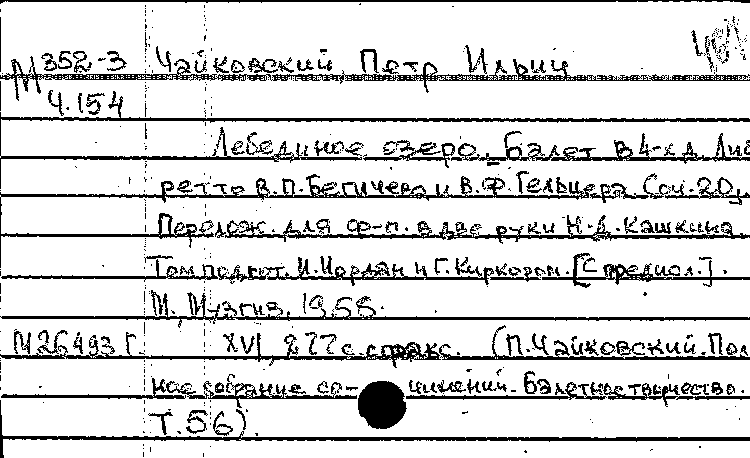 М 352-3 Чайковский, Петр Ильич
Ч.154
Лебединое озеро. Балет в 4-х д. Либ
ретто В.П. Бегичева и В.Ф. Гельцера. Соч. 20,
Перелож. для ф-п. в две руки Н.Д. Кашкина.
Том подгот. И. Иордан и Г. Киркором. [С предисл.].
М., Музгиз, 1958.
М26493 Г. XVI, 277 с. с факс. (П. Чайковский. Пол
ное собрание со- чинений. Балетное творчество.
Т.56).